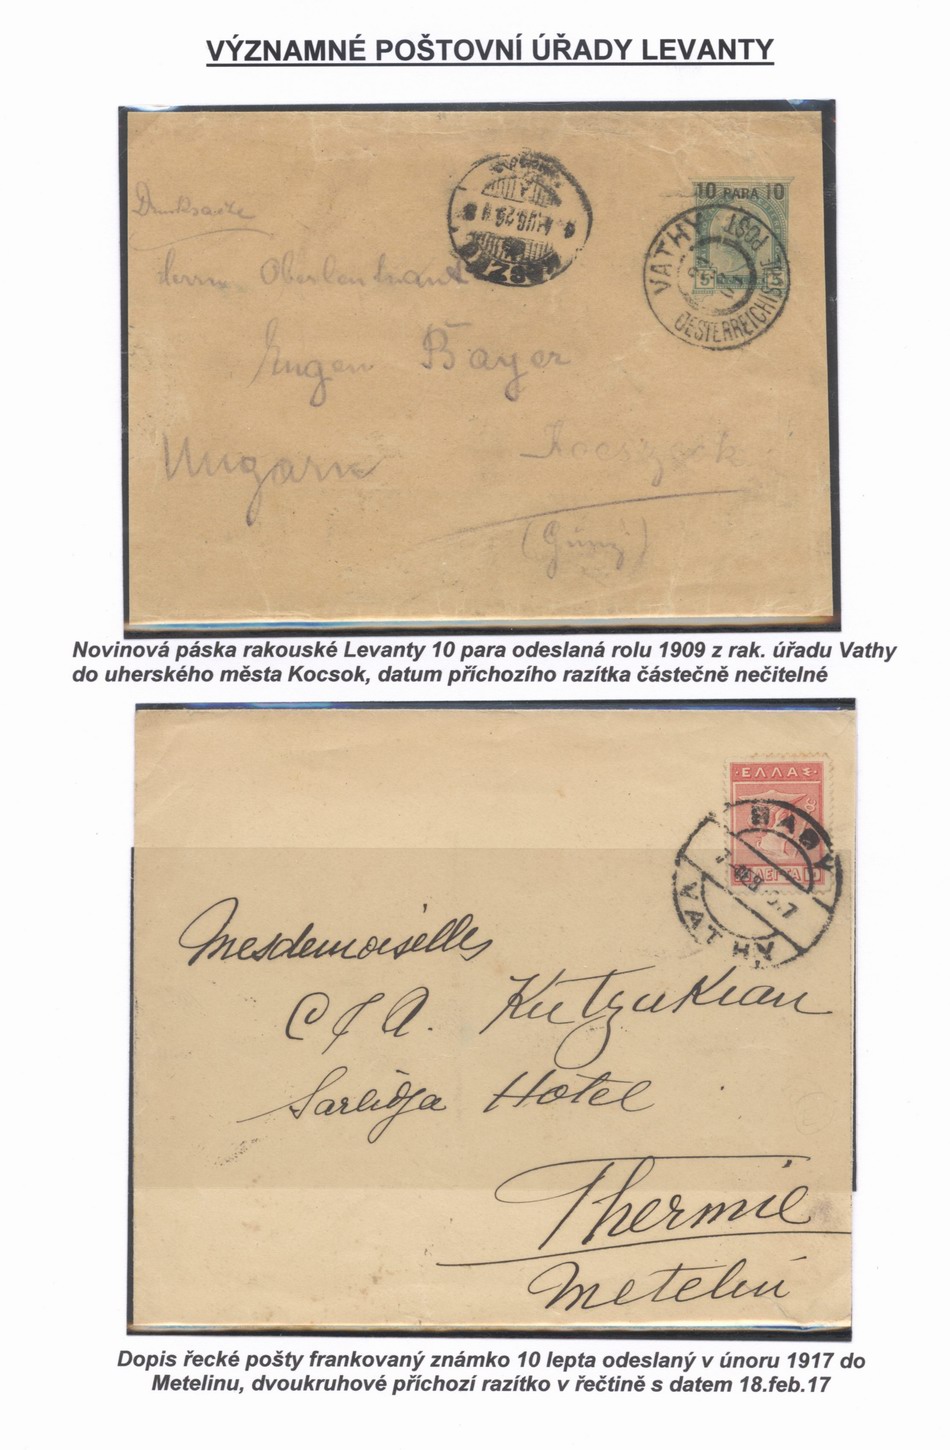 VÝZNAMNÉ POŠTOVNÍ ÚŘADY LEVANTY
Drucksache
10 PARA 10
5 5
VATHY
OESTERREICHISCHE POST
AUG 26
Herrn Oberleutnant
Eugen Bayer
Ungarn
(Güns)
Novinová páska rakouské Levanty 10 para odeslaná rolu 1909 z rak. úřadu Vathy
do uherského města Kocsok, datum příchozího razítka částečně nečitelné
ΕΛΛΑΣ
ΛΕΠΤΑ
VATHY
Mesdemoiselles
C & A. Kutzukian
Sarlidja Hotel
Thermie
Metelin
Dopis řecké pošty frankovaný známko 10 lepta odeslaný v únoru 1917 do
Metelinu, dvoukruhové příchozí razítko v řečtině s datem 18.feb.17